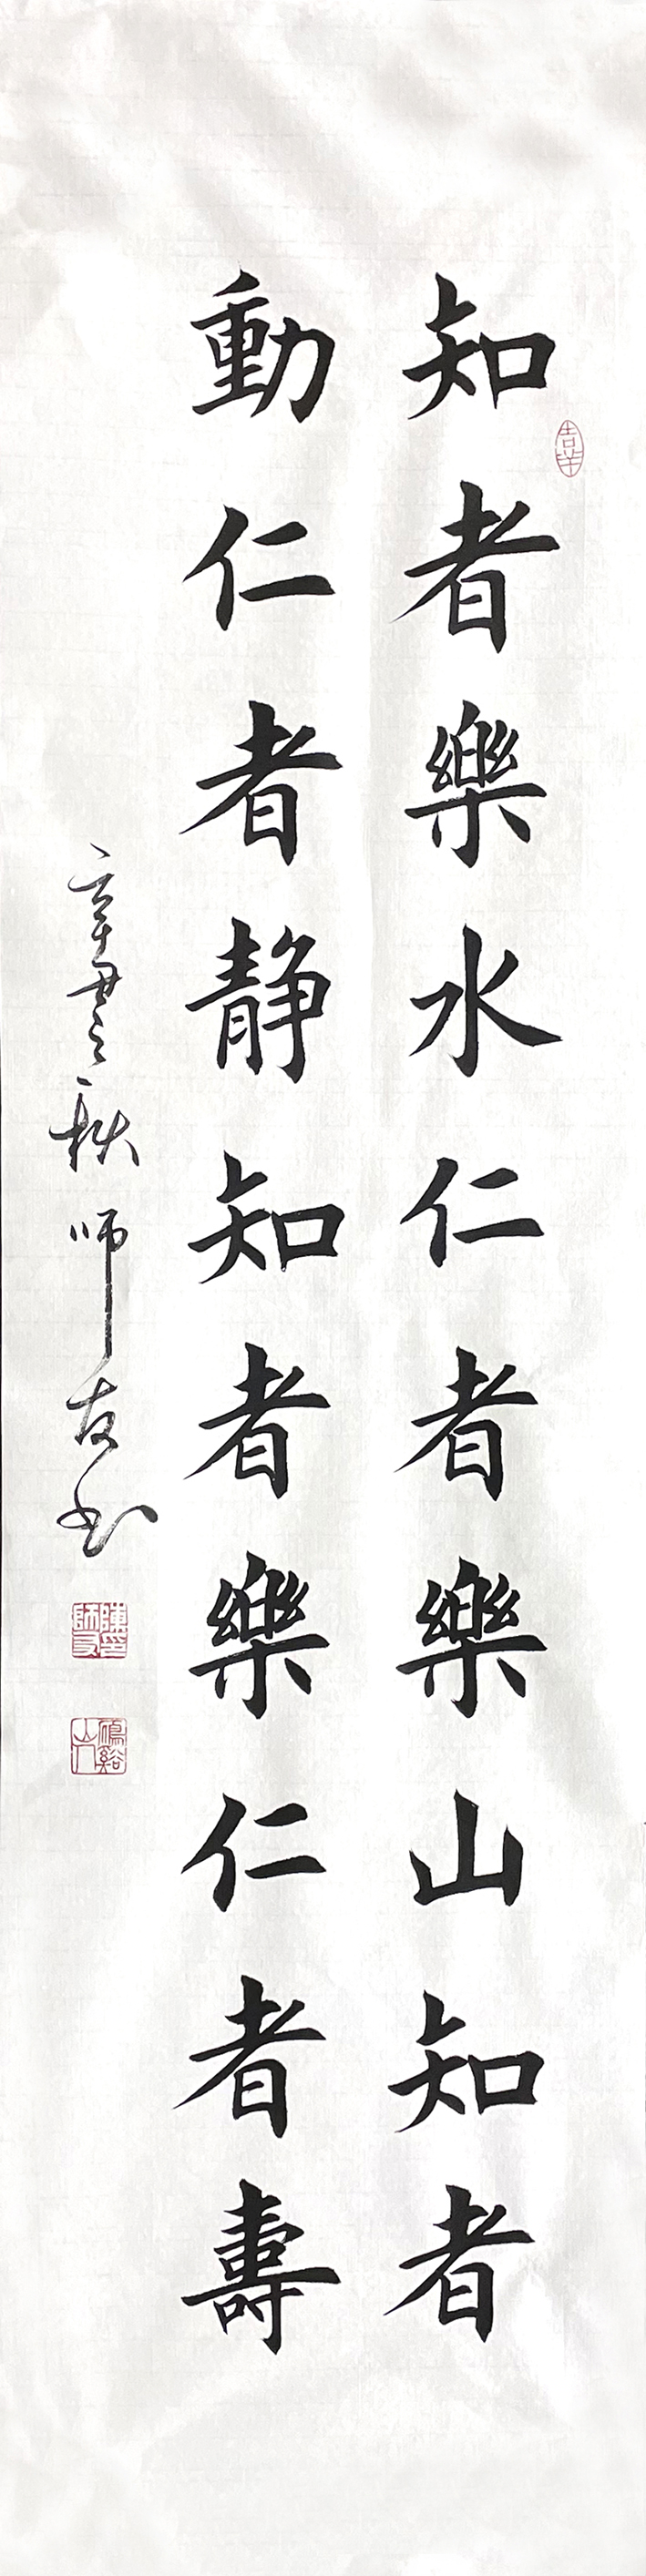 知者樂水仁者樂山知者
動仁者静知者樂仁者壽
辛丑之秋師友书
吉羊
陳印師友